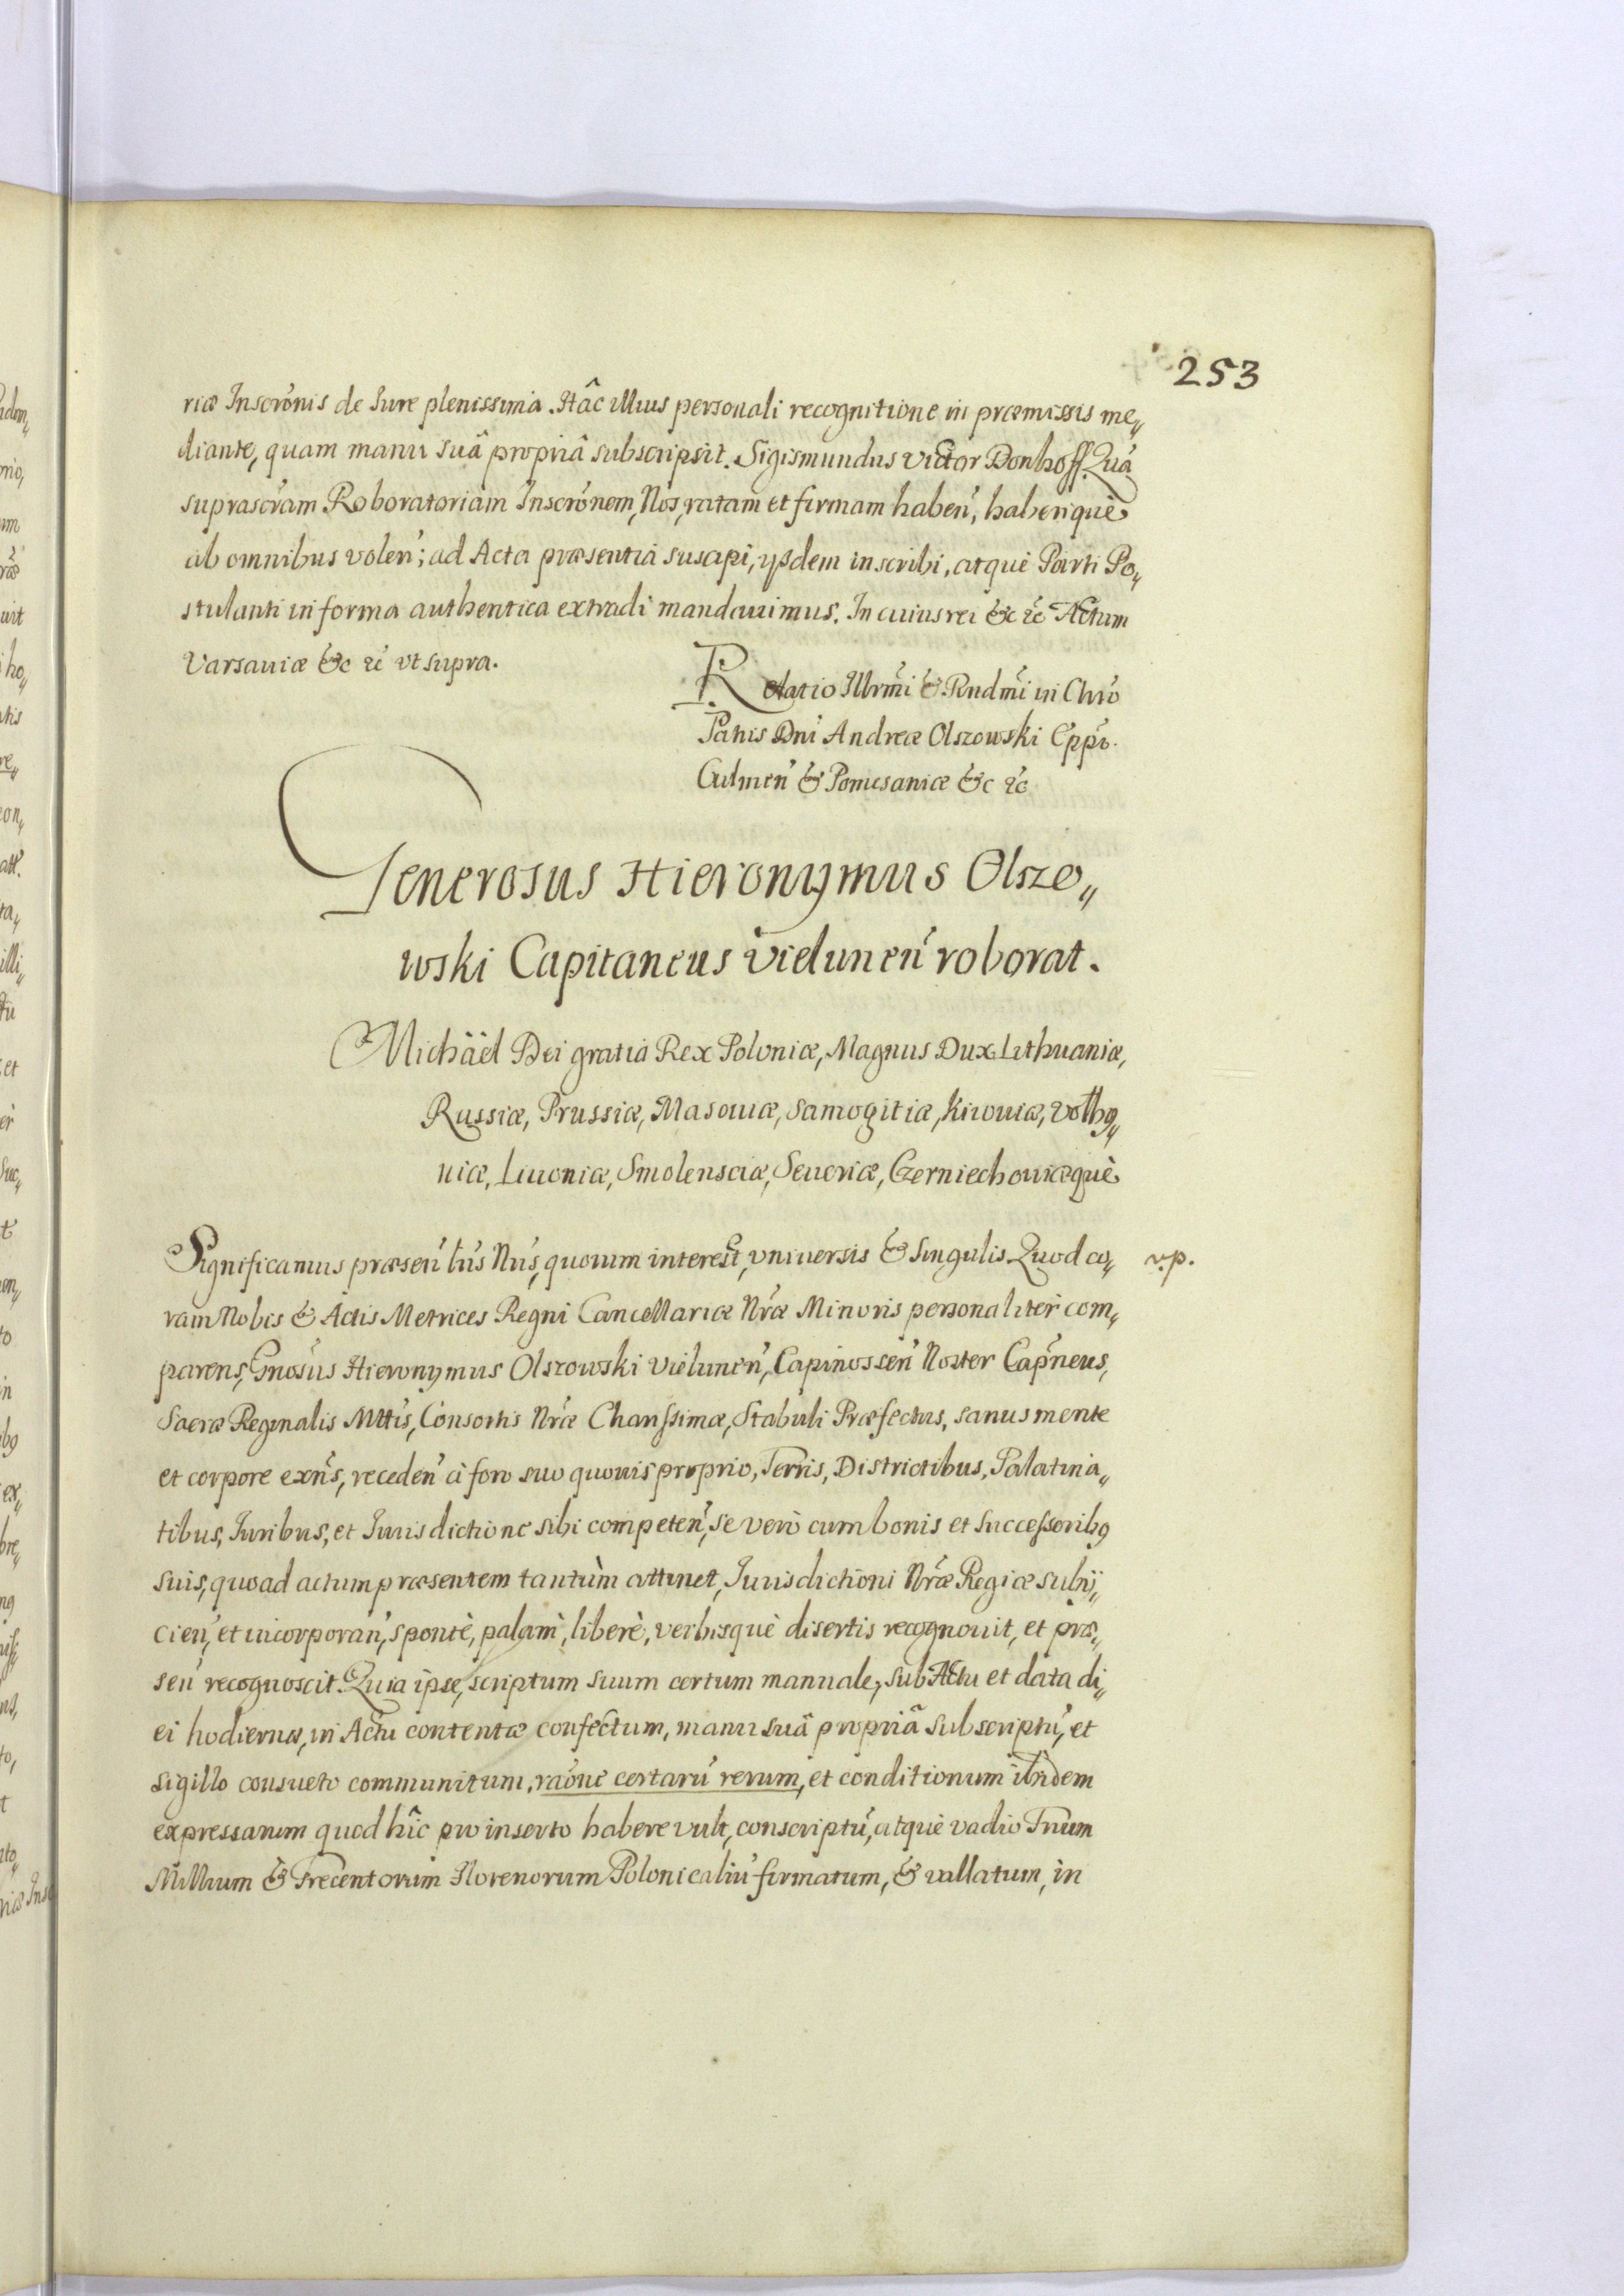 253
riæ Inscrónis de Iure plenissima. Hâc illius personali recognitione in præmissis me„
diante, quam manu suâ propriâ subscripsit. Sigismundus Victor Donhoff. Quá
suprascrám Roboratoriam Inscrónem, Nos, ratam et firmam habeń, haberiquè
ab omnibus voleń; ad Acta præsentia suscipi, ijsdem inscribi, atquè Parti Po„
stulanti in forma authentica extradi mandauimus. In cuius rei &c rć Actum
Varsauiæ &c rć vt supra.
Relatio Illrmi & Rndmi in Chro
Patris Dni Andreæ Olszowski Eppi.
Culmeń & Pomesaniæ &c rć
Generosus Hieronymus Olszo„
wski Capitaneus Vieluneń roborat.
Michäël Dei gratia Rex Poloniæ, Magnus Dux Lithuaniæ,
Russiæ, Prussiæ, Masouiæ, Samogitiæ, Kiiouiæ, Volhy„
niæ, Liuoniæ, Smolensciæ, Seueriæ, Czerniechouiæquè
Significamus præseń tús Nús, quorum interest, vniuersis & singulis. Quod co„
v.p.
ram Nobis & Actis Metrices Regni Cancellariæ Nræ Minoris personaliter com„
parens, Gnosus Hieronymus Olszowski Vieluneń, Capinosseń Noster Capneus,
Sacræ Reginalis Mttis, Consortis Nræ Charissimæ, Stabuli Præfectus, sanus mente
et corpore exńs, recedeń à foro suo quouis proprio, Terris, Districtibus, Palatina„
tibus, Iuribus, et Iurisdictione sibi competeń, se verò cum bonis et successorib9
suis, quoad actum præsentem tantùm attinet, Iurisdictioni Nræ Regiæ subij„
cień, et incorporań, spontè, palàm, liberè, verbisquè disertis recognouit, et præ„
seń recognoscit. Quia ipse, scriptum suum certum manuale, sub Actu et data di„
ei hodiernæ, in Actu contentæ confectum, manu suâ propriâ subscriptú, et
sigillo consueto communitum, raóne certarú rerum, et conditionum ibidem
expressarum quod hîc pro inserto habere vult, conscriptú, atquè vadio Trium
Millium & Trecentorum Florenorum Polonicaliú firmatum, & vallatum, in